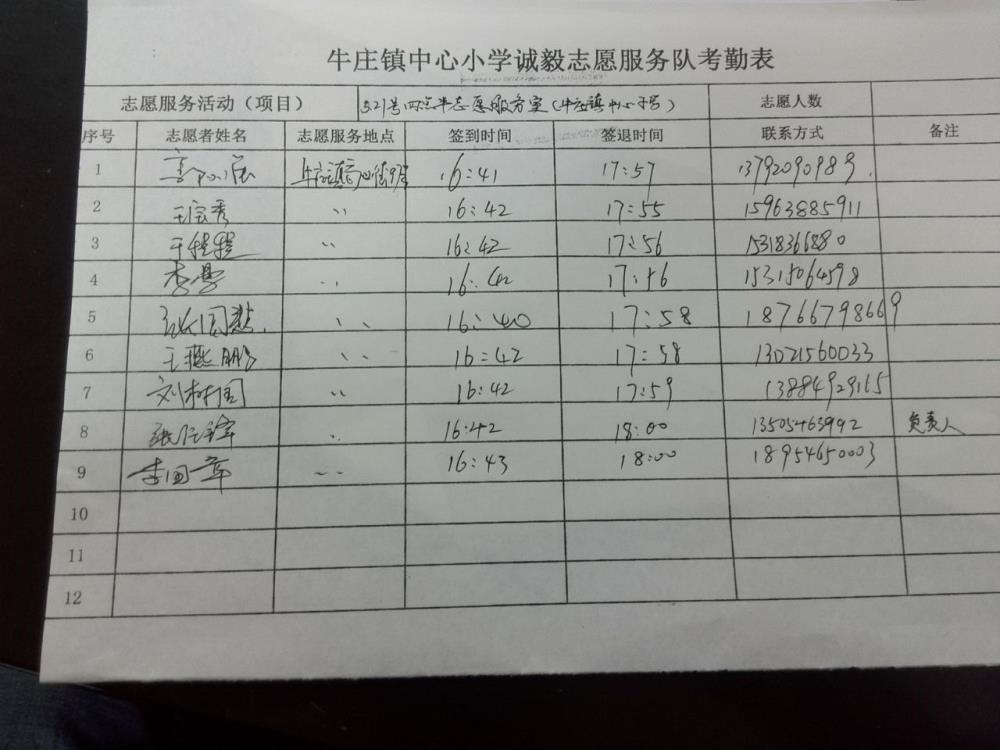 牛庄镇中心小学诚毅志愿服务队考勤表
志愿服务活动（项目） 321号四点半志愿服务室（牛庄镇中心小学） 志愿人数
序号 志愿者姓名 志愿服务地点 签到时间 签退时间 联系方式 备注
1 牛庄镇 16:41 17:57 13792090989
2 王宝秀 〃 16:42 17:55 15963885911
3 〃 16:42 17:56 15318366880
4 〃 16:42 17:56 15315064598
5 〃 16:40 17:58 18766798669
6 王燕鹏 〃 16:42 17:58 13021560033
7 刘树国 〃 16:42 17:59 13884929165
8 〃 16:42 18:00 13505463992 负责人
9 李国章 〃 16:43 18:00 18954650003
10
11
12